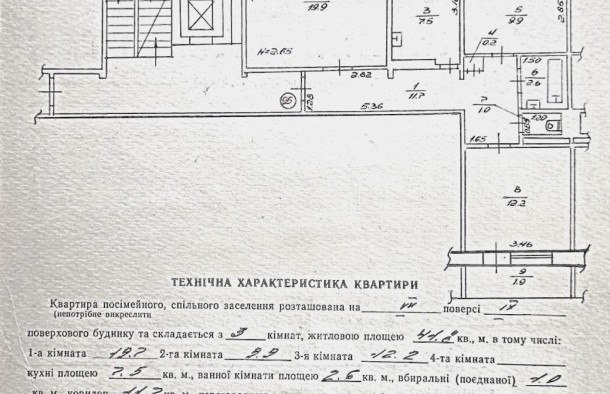 19.9
3
7.5
5
9.9
4
0.2
H=2.65
1.50
6
2.6
2.82
1
11.7
7
1.0
1.20
95
1.25
5.36
1.65
8
12.2
3.46
9
1.9
ТЕХНІЧНА ХАРАКТЕРИСТИКА КВАРТИРИ
Квартира посімейного, спільного заселення розташована на VII поверсі IX
(непотрібне викреслити
поверхового будинку та складається з 3 кімнат, житловою площею 41.8 кв., м. в тому числі:
1-а кімната 19.7 2-га кімната 9.9 3-я кімната 12.2 4-та кімната
кухні площею 7.5 кв. м., ванної кімнати площею 2.6 кв. м., вбиральні (поєднаної) 1.0
кв. м. коридор 11.7 кв. м.